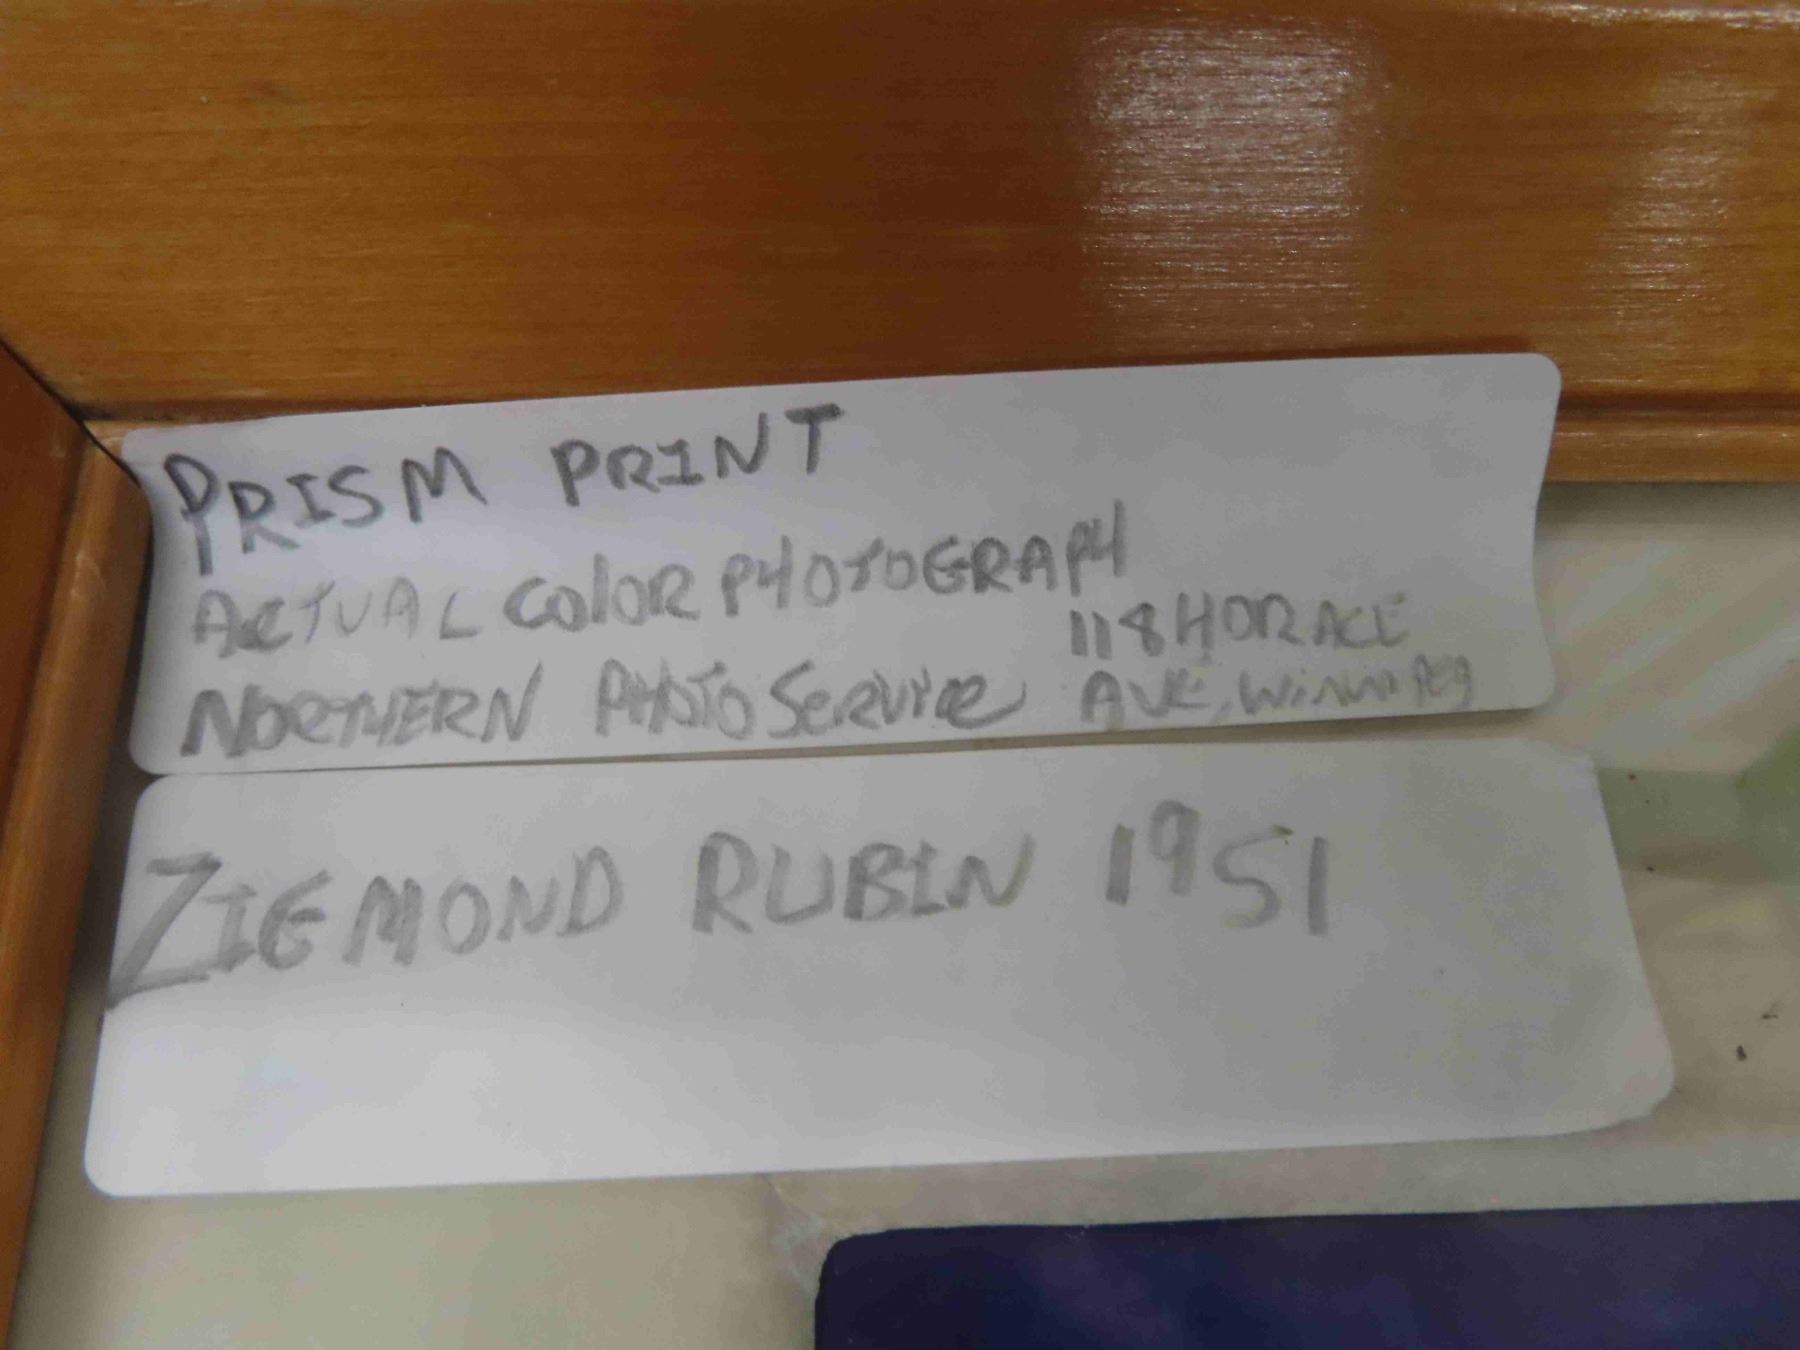 PRISM PRINT
ACTUAL COLOR PHOTOGRAPH
NORTHERN PHOTO SERVICE 118 HORACE AVE, WINNIPEG
ZIGMOND RUBIN 1951